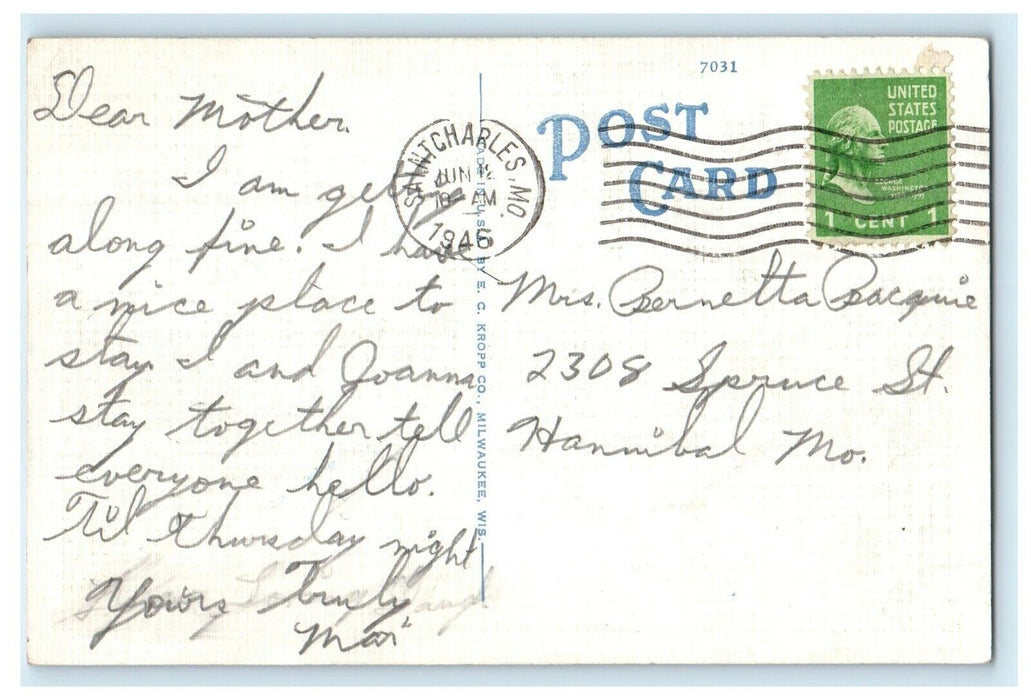 Dear Mother.
I am
along fine. I have
a nice place to
stay. I and Joanna
stay together tell
everyone hello.
Til Thursday night
Yours Truly
SAINT CHARLES, MO.
JUN
10 AM
1946
MADE IN U.S.A. BY E. C. KROPP CO., MILWAUKEE, WIS.
7031
POST
CARD
UNITED
STATES
POSTAGE
GEORGE
WASHINGTON
1 CENT 1
Mrs. Bernetta Bacquie
2308 Spruce St.
Hannibal Mo.